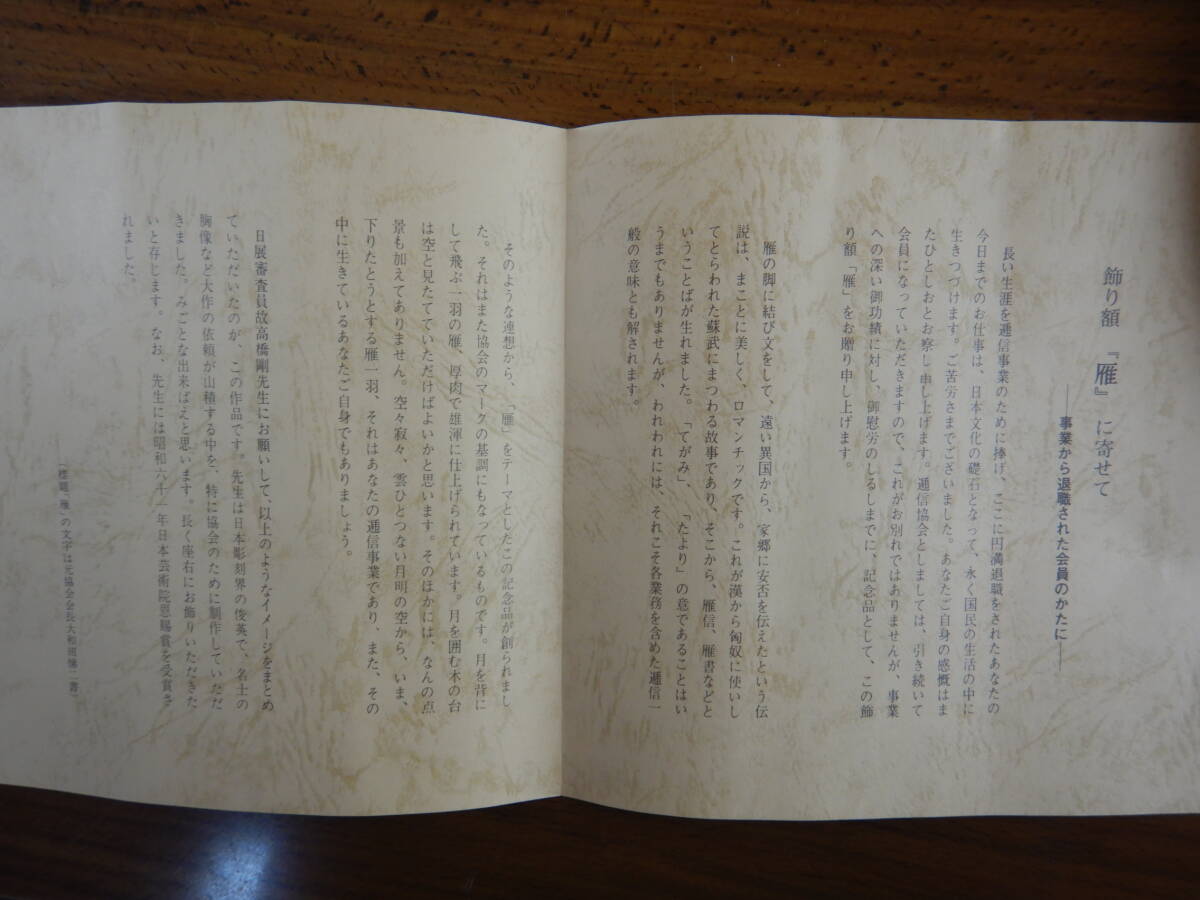 飾り額『雁』に寄せて
――事業から退職された会員のかたに――
長い生涯を逓信事業のために捧げ、ここに円満退職をされたあなたの
今日までのお仕事は、日本文化の礎石となって、永く国民の生活の中に
生きつづけます。ご苦労さまでございました。あなたご自身の感慨はま
たひとしおとお察し申し上げます。逓信協会としましては、引き続いて
会員になっていただきますので、これがお別れではありませんが、事業
への深い御功績に対し、御慰労のしるしまでに、記念品として、この飾
り額「雁」をお贈り申し上げます。
雁の脚に結び文をして、遠い異国から、家郷に安否を伝えたという伝
説は、まことに美しく、ロマンチックです。これが漢から匈奴に使いし
てとらわれた蘇武にまつわる故事であり、そこから、雁信、雁書などと
いうことばが生れました。「てがみ」、「たより」の意であることはい
うまでもありませんが、われわれには、それこそ各業務を含めた逓信一
般の意味とも解されます。
そのような連想から、「雁」をテーマとしたこの記念品が創られまし
た。それはまた協会のマークの基調にもなっているものです。月を背に
して飛ぶ一羽の雁、厚肉で雄渾に仕上げられています。月を囲む木の台
は空と見たてていただけばよいかと思います。そのほかには、なんの点
景も加えてありません。空々寂々、雲ひとつない月明の空から、いま、
下りたとうとする雁一羽、それはあなたの逓信事業であり、また、その
中に生きているあなたご自身でもありましょう。
日展審査員故高橋剛先生にお願いして、以上のようなイメージをまとめ
ていただいたのが、この作品です。先生は日本彫刻界の俊英で、名士の
胸像など大作の依頼が山積する中を、特に協会のために制作していただ
きました。みごとな出来ばえと思います。長く座右にお飾りいただきた
いと存じます。なお、先生には昭和六十一年日本芸術院恩賜賞を受賞さ
れました。
（標題「雁」の文字は元協会会長大和田悌二書）